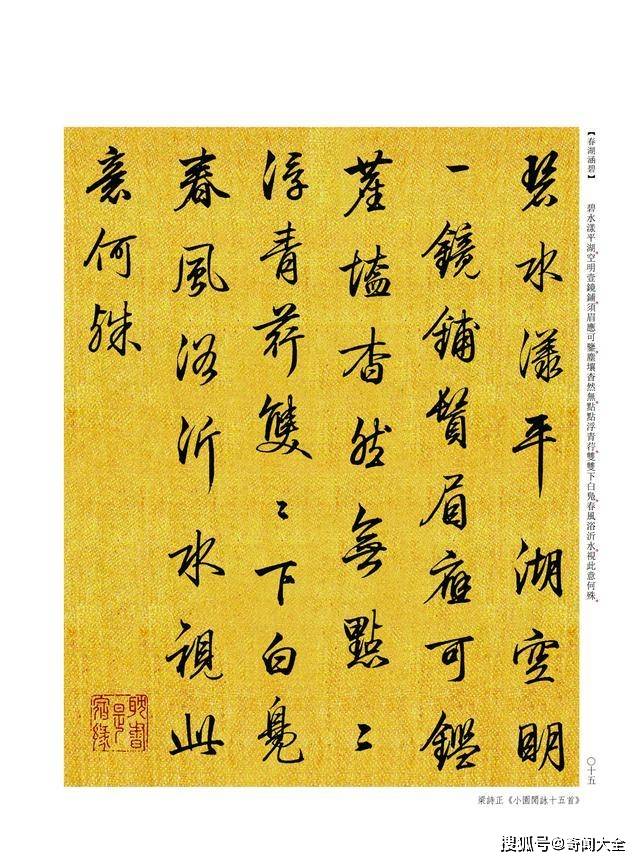 【春湖涵碧】
碧水漾平湖。空明壹鏡鋪。須眉應可鑒。塵壤杳然無。點點浮青荇。雙雙下白鳧。春風浴沂水。視此意何殊。
碧水漾平湖空明
一鏡鋪鬚眉應可鑑
塵壒杳然無點〻
浮青荇雙〻下白鳧
春風浴沂水視此
意何殊
耽書是宿緣
〇十五
梁詩正《小園閒詠十五首》
搜狐号@奇闻大全